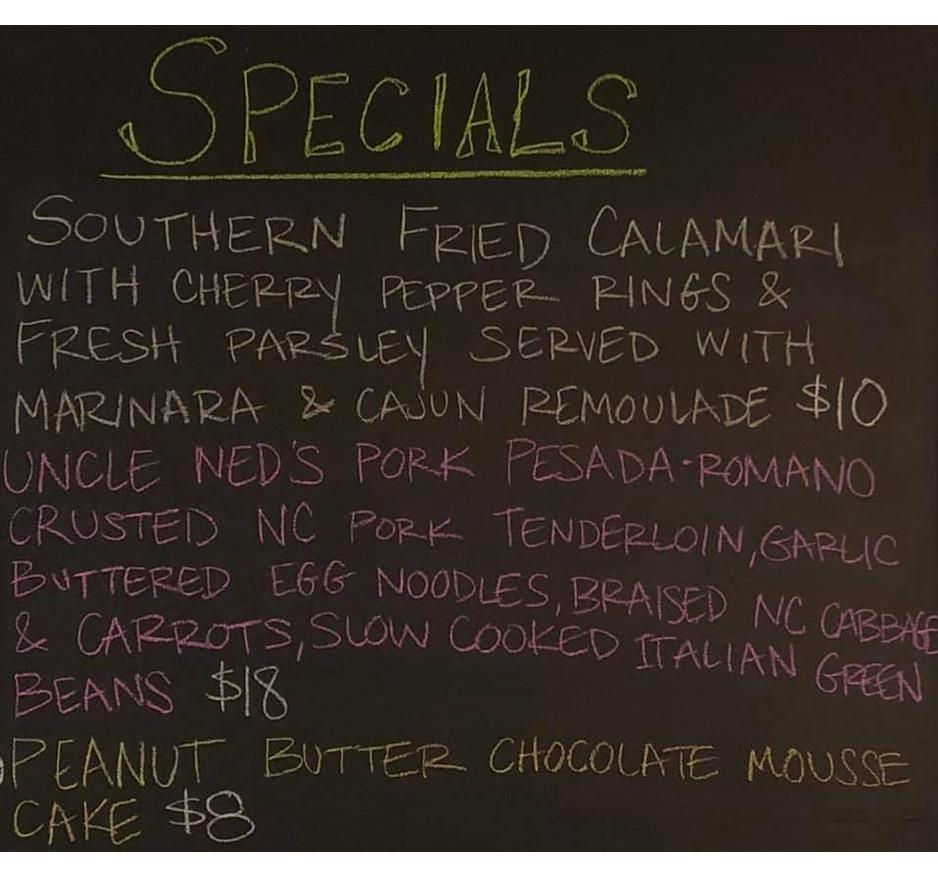 SPECIALS
SOUTHERN FRIED CALAMARI
WITH CHERRY PEPPER RINGS &
FRESH PARSLEY SERVED WITH
MARINARA & CAJUN REMOULADE $10
UNCLE NED'S PORK PESADA-ROMANO
CRUSTED NC PORK TENDERLOIN, GARLIC
BUTTERED EGG NOODLES, BRAISED NC CABBAGE
& CARROTS, SLOW COOKED ITALIAN GREEN
BEANS $18
PEANUT BUTTER CHOCOLATE MOUSSE
CAKE $8